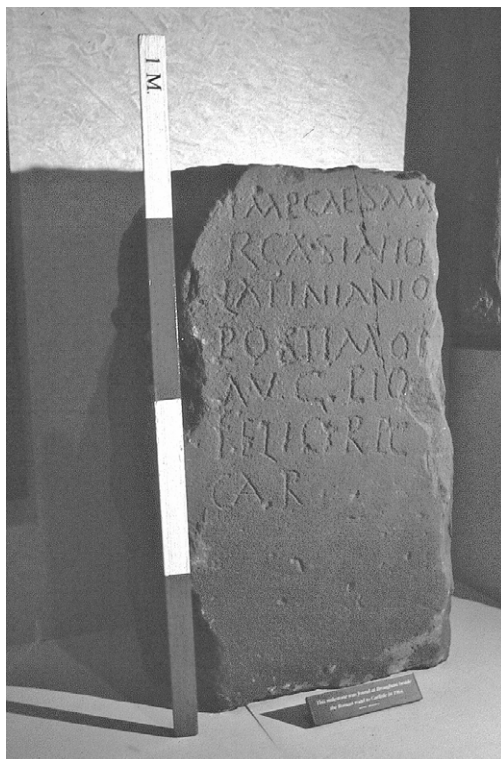 1 M.
IMP CAES MA
RCASIANIO
LATINIANIO
POSTIMO
AVG PIO
CAR
This milestone was found at Brougham beside
the Roman road to Carlisle in 1964